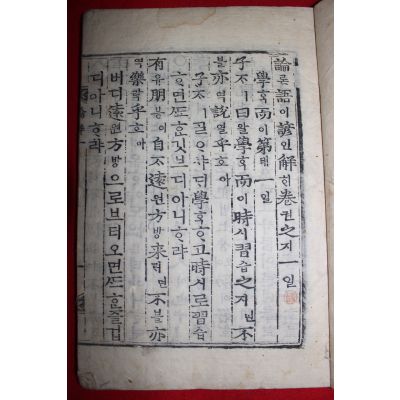 論론語어諺언解ᄒᆡ卷권之지一일
學ᄒᆞᆨ而이第뎨一일
子ᄌᆞㅣ曰왈學ᄒᆞᆨ而이時시習습之지면不
블亦역說열乎호아
子ᄌᆞㅣᄀᆞᆯᄋᆞ샤ᄃᆡ學ᄒᆞᆨᄒᆞ고時시로習습
ᄒᆞ면ᄯᅩᄒᆞᆫ깃브디아니ᄒᆞ랴
有유朋붕이自ᄌᆞ遠원方방來ᄅᆡ면不블亦
역樂락乎호아
버디遠원方방으로브티오면ᄯᅩᄒᆞᆫ즐겁
디아니ᄒᆞ랴